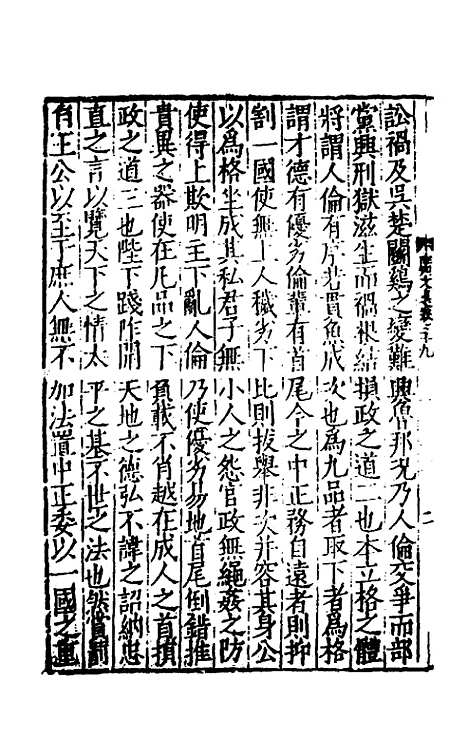 訟禍及吳楚鬭鷄之變難興魯邦況乃人倫交爭而部
黨興刑獄滋生而禍根結損政之道二也本立格之體
將謂人倫有序若貫魚成次也爲九品者取下者爲格
謂才德有優劣倫輩有首尾今之中正務自遠者則抑
割一國使無上人穢劣下比則拔舉非次并容其身公
以爲格坐成其私君子無小人之怨官政無繩姦之防
使得上欺明主下亂人倫乃使優劣易地首尾倒錯推
貴異之器使在凡品之下負載不肖越在成人之首損
政之道三也陛下踐阼開天地之德弘不諱之詔納忠
直之言以覽天下之情太平之基不世之法也然賞罰
自王公以至于庶人無不加法置中正委以一國之重